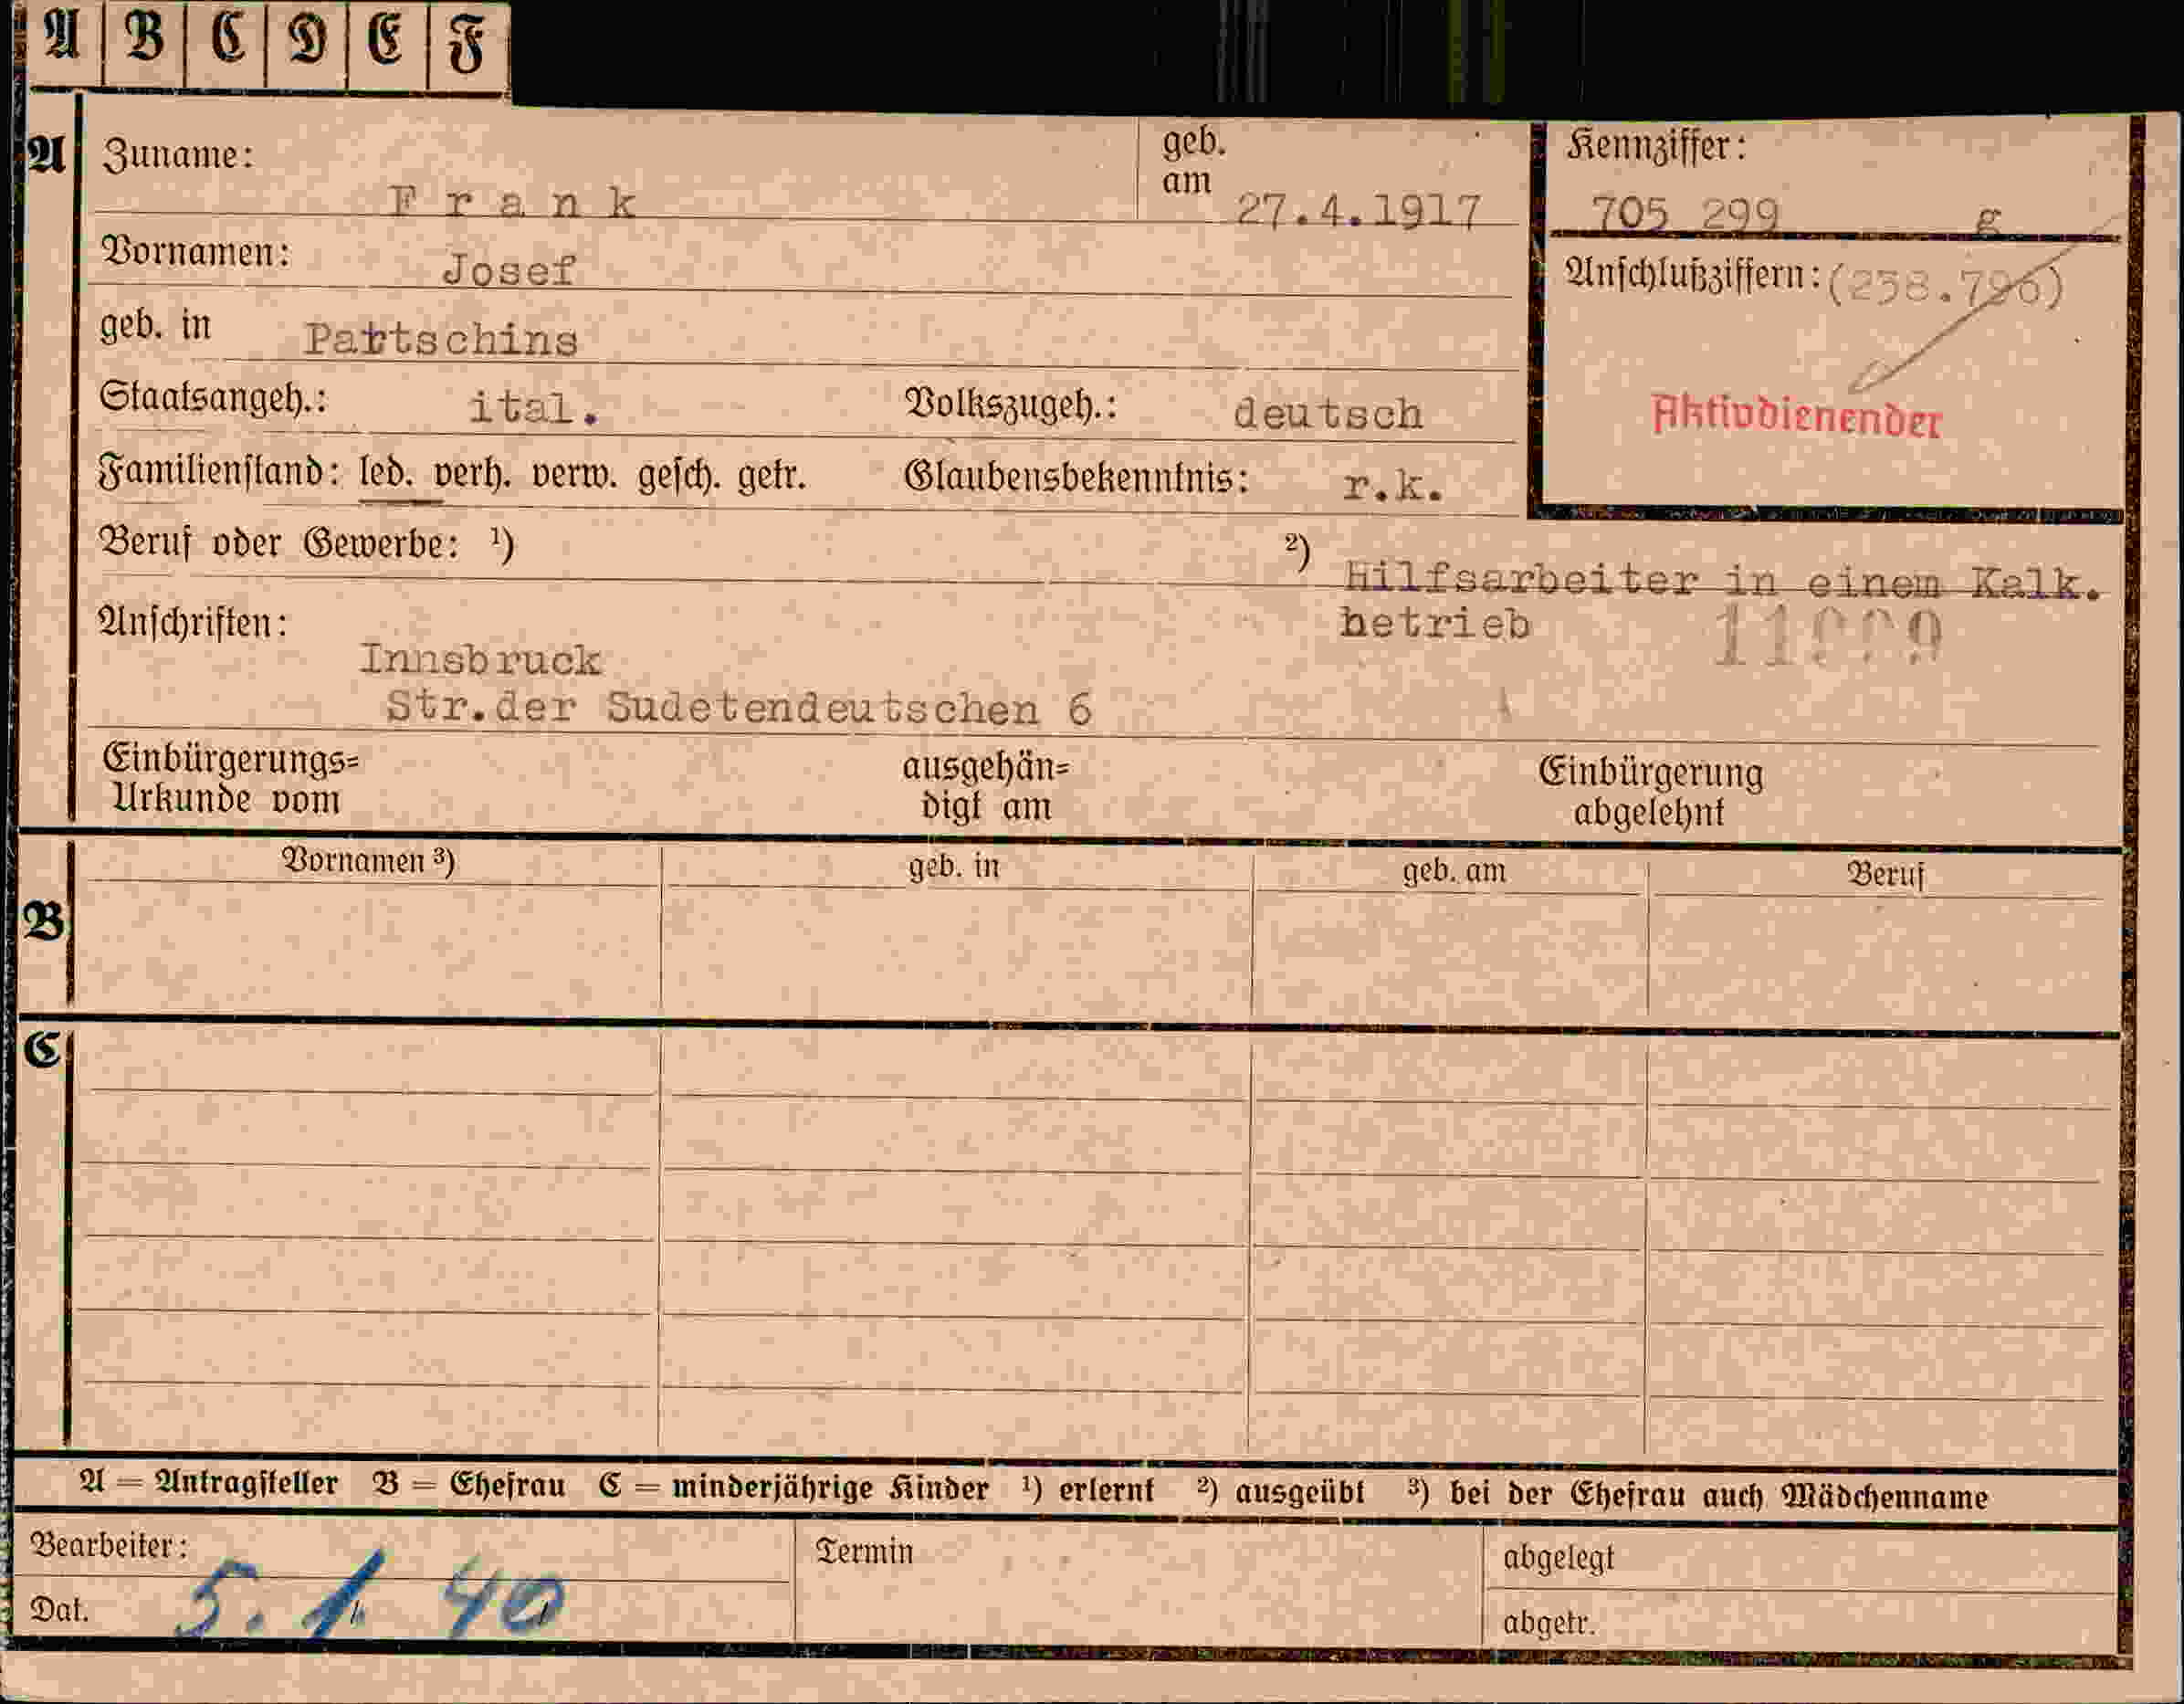 A B C D E F
A Zuname: Frank geb. am 27.4.1917
Kennziffer: 705 299 g
Vornamen: Josef
Anschlußziffern: (258.796)
geb. in Partschins
Staatsangeh.: ital. Volkszugeh.: deutsch
Aktivdienender
Familienstand: led. verh. verw. gesch. getr. Glaubensbekenntnis: r.k.
Beruf oder Gewerbe: ¹) ²) Hilfsarbeiter in einem Kalk.
betrieb
Anschriften:
Innsbruck
Str.der Sudetendeutschen 6
Einbürgerungs= ausgehän= Einbürgerung
Urkunde vom digt am abgelehnt
B Vornamen ³) geb. in geb. am Beruf
C
A = Antragsteller B = Ehefrau C = minderjährige Kinder ¹) erlernt ²) ausgeübt ³) bei der Ehefrau auch Mädchenname
Bearbeiter: Termin abgelegt
Dat. 5. 1. 40 abgetr.